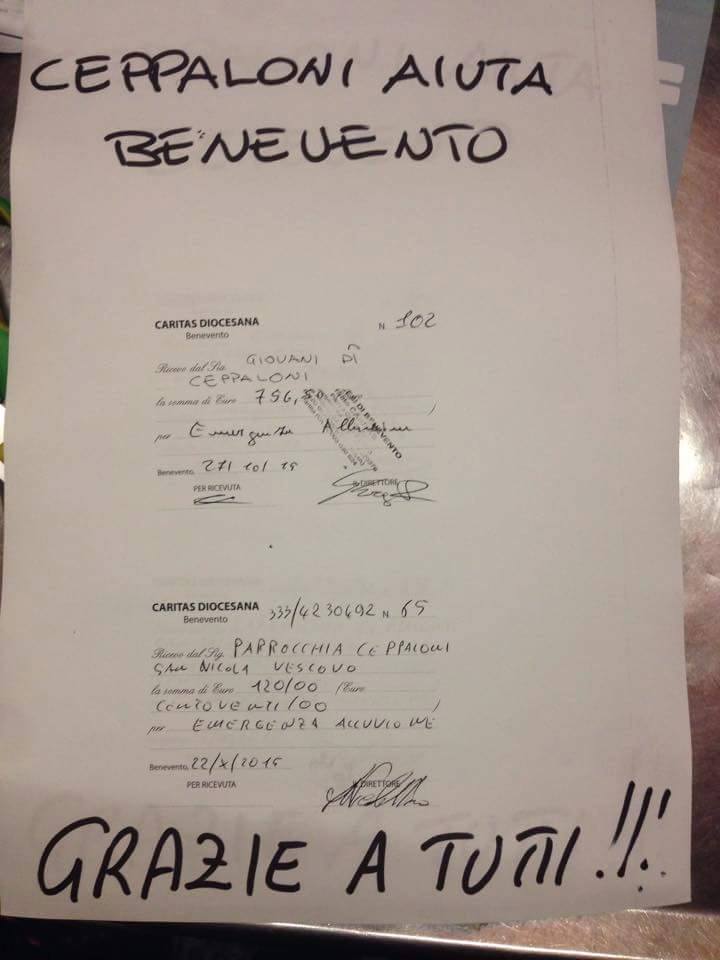 CEPPALONI AIUTA
BENEVENTO
CARITAS DIOCESANA
Benevento
N. 102
Ricevo dal Sig. GIOVANI DI
CEPPALONI
la somma di Euro 756,
per Emergenza Alluvione
Benevento, 27/10/15
PER RICEVUTA
IL DIRETTORE
CARITAS DIOCESANA 333/4230492 N. 65
Benevento
Ricevo dal Sig. PARROCCHIA CEPPALONI
SAN NICOLA VESCOVO
la somma di Euro 120/00 (Euro
CENTOVENTI/00 )
per EMERGENZA ALLUVIONE
Benevento, 22/X/2015
PER RICEVUTA
IL DIRETTORE
GRAZIE A TUTTI!!!